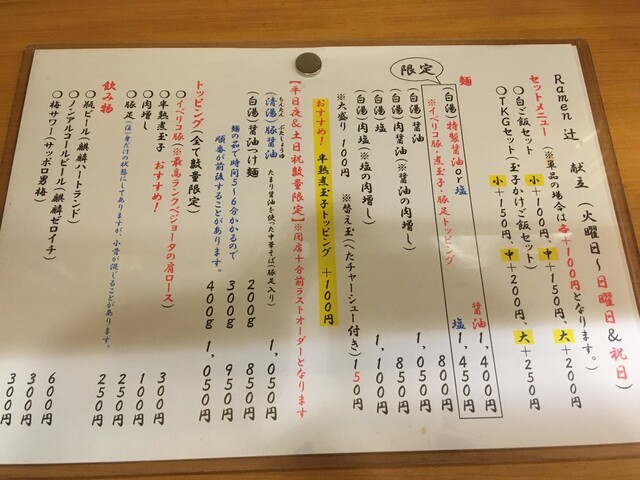 Ramen 辻 献立（火曜日～日曜日＆祝日）
セットメニュー（※単品の場合は各+100円となります。）
〇白ご飯セット 小+100円、中+150円、大+200円
〇TKGセット（玉子かけご飯セット）小+150円、中+200円、大+250円
麺
限定
（白湯）特製醤油or塩 醤油1,400円
※イベリコ豚・煮玉子・豚足トッピング 塩1,450円
（白湯）醤油 800円
（白湯）肉醤油（※醤油の肉増し）1,050円
（白湯）塩 850円
（白湯）肉塩（※塩の肉増し）1,100円
※大盛り 100円 ※替え玉（へたチャーシュー付き）150円
おすすめ！ 半熟煮玉子トッピング +100円
【平日夜＆土日祝数量限定】※閉店十分前ラストオーダーとなります
（清湯）豚醤油 たまり醤油を使った中華そば（豚足入り）1,050円
ちんたん ぶたしょうゆ
（白湯）醤油つけ麺 200g 850円
麺の茹で時間5～6分かかるので 300g 950円
順番が前後することがあります。 400g 1,050円
トッピング（全て数量限定）
〇イベリコ豚（※最高ランクベジョータの肩ロース）300円
〇半熟煮玉子 おすすめ！ 100円
〇肉増し 250円
〇豚足（注）骨だけの状態にしてありますが、小骨が混じることがあります。 250円
飲み物
〇瓶ビール（麒麟ハートランド）600円
〇ノンアルコールビール（麒麟ゼロイチ）300円
〇梅サワー（サッポロ男梅）300円